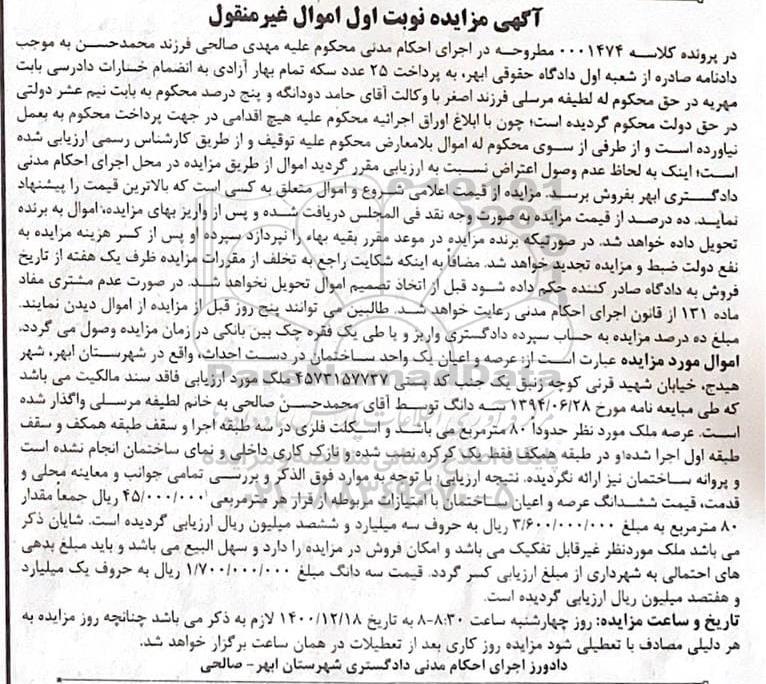 آگهی مزایده نوبت اول اموال غیرمنقول
در پرونده کلاسه ۰۰۰۱۴۷۴ مطروحه در اجرای احکام مدنی محکوم علیه مهدی صالحی فرزند محمدحسن به موجب
دادنامه صادره از شعبه اول دادگاه حقوقی ابهر، به پرداخت ۲۵ عدد سکه تمام بهار آزادی به انضمام خسارات دادرسی بابت
مهریه در حق محکوم له لطیفه مرسلی فرزند اصغر با وکالت آقای حامد دودانگه و پنج درصد محکوم به بابت نیم عشر دولتی
در حق دولت محکوم گردیده است؛ چون با ابلاغ اوراق اجرائیه محکوم علیه هیچ اقدامی در جهت پرداخت محکوم به بعمل
نیاورده است و از طرفی از سوی محکوم له اموال بلامعارض محکوم علیه توقیف و از طریق کارشناس رسمی ارزیابی شده
است؛ اینک به لحاظ عدم وصول اعتراض نسبت به ارزیابی مقرر گردید اموال از طریق مزایده در محل اجرای احکام مدنی
دادگستری ابهر بفروش برسد. مزایده از قیمت اعلامی شروع و اموال متعلق به کسی است که بالاترین قیمت را پیشنهاد
نماید. ده درصد از قیمت مزایده به صورت وجه نقد فی المجلس دریافت شده و پس از واریز بهای مزایده، اموال به برنده
تحویل داده خواهد شد. در صورتیکه برنده مزایده در موعد مقرر بقیه بهاء را نپردازد سپرده او پس از کسر هزینه مزایده به
نفع دولت ضبط و مزایده تجدید خواهد شد. مضافاً به اینکه شکایت راجع به تخلف از مقررات مزایده ظرف یک هفته از تاریخ
فروش به دادگاه صادر کننده حکم داده شود قبل از اتخاذ تصمیم اموال تحویل نخواهد شد. در صورت عدم مشتری مفاد
ماده ۱۳۱ از قانون اجرای احکام مدنی رعایت خواهد شد. طالبین می توانند پنج روز قبل از مزایده از اموال دیدن نمایند.
مبلغ ده درصد مزایده به حساب سپرده دادگستری واریز و یا طی یک فقره چک بین بانکی در زمان مزایده وصول می گردد.
اموال مورد مزایده عبارت است از: عرصه و اعیان یک واحد ساختمان در دست احداث، واقع در شهرستان ابهر، شهر
هیدج، خیابان شهید قرنی کوچه زنبق یک جنب کد پستی ۴۵۷۳۱۵۷۷۳۷ ملک مورد ارزیابی فاقد سند مالکیت می باشد
که طی مبایعه نامه مورخ ۱۳۹۴/۰۶/۲۸ سه دانگ توسط آقای محمدحسن صالحی به خانم لطیفه مرسلی واگذار شده
است. عرصه ملک مورد نظر حدوداً ۸۰ مترمربع می باشد و اسکلت فلزی در سه طبقه اجرا و سقف طبقه همکف و سقف
طبقه اول اجرا شده و در طبقه همکف فقط یک کرکره نصب شده و نازک کاری داخلی و نمای ساختمان انجام نشده است
و پروانه ساختمان نیز ارائه نگردیده. نتیجه ارزیابی: با توجه به موارد فوق الذکر و بررسی تمامی جوانب و معاینه محلی و
قدمت، قیمت ششدانگ عرصه و اعیان ساختمان با امتیازات مربوطه از قرار هر مترمربعی ۴۵/۰۰۰/۰۰۰ ریال جمعاً مقدار
۸۰ مترمربع به مبلغ ۳/۶۰۰/۰۰۰/۰۰۰ ریال به حروف سه میلیارد و ششصد میلیون ریال ارزیابی گردیده است. شایان ذکر
می باشد ملک موردنظر غیرقابل تفکیک می باشد و امکان فروش در مزایده را دارد و سهل البیع می باشد و باید مبلغ بدهی
های احتمالی به شهرداری از مبلغ ارزیابی کسر گردد. قیمت سه دانگ مبلغ ۱/۷۰۰/۰۰۰/۰۰۰ ریال به حروف یک میلیارد
و هفتصد میلیون ریال ارزیابی گردیده است.
تاریخ و ساعت مزایده: روز چهارشنبه ساعت ۸:۳۰-۸ به تاریخ ۱۴۰۰/۱۲/۱۸ لازم به ذکر می باشد چنانچه روز مزایده به
هر دلیلی مصادف با تعطیلی شود مزایده روز کاری بعد از تعطیلات در همان ساعت برگزار خواهد شد.
دادورز اجرای احکام مدنی دادگستری شهرستان ابهر- صالحی
ParsNamadData